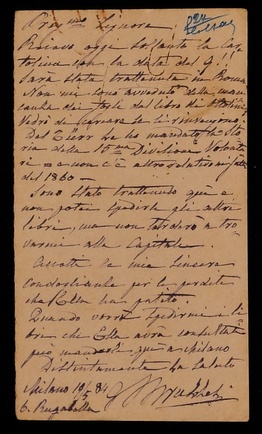 Preg.ma Signora
Ricevo oggi soltanto la car
tolina con la data del 4!!
Sarà stata trattenuta in Roma
Non mi sono avveduto della man
canza dei fogli del libro di
Vedrò di cercare se li rinvengono.
Dal ho mandato la Sto
ria della 15.ma Divisione Volonta
ri = e non c'è altro relativamente
del 1860 =
Sono stato trattenuto qui e
non potei spedirle gli altri
libri, ma non tarderò a tro
varmi alla Capitale.
Accetti le mie sincere
condoglianze per le perdite
che Ella ha patito.
Quando vorrà spedirmi i li
bri che Ella avrà consultati
può mandarli qui a Milano
Distintamente la saluto
Milano 19/5 84
6. Rugabella